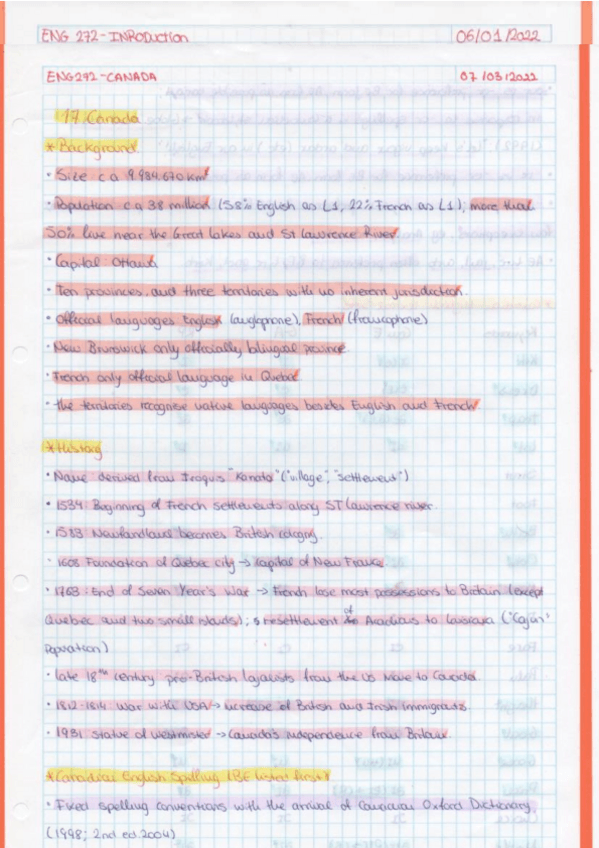 ENG 272 - INRODUCTION
06/01/2022
ENG272 - CANADA
07/03/2022
17 Canada
* Background
• Size ca 9 984.670 km²
• Population ca 38 million (58% English as L1, 22% French as L1), more than
50% live near the Great Lakes and St Lawrence River
• Capital: Ottawa
• Ten provinces and three territories with no inherent jurisdiction
• Official languages English (anglophone), French (francophone)
• New Brunswick only officially bilingual province
• French only official language in Quebec
• The territories recognise native languages besides English and French
* History
• Name derived from Iroquis "Kanata" ("village", "settlement")
• 1534: Beginning of French settlements along ST Lawrence river.
• 1583 Newfoundland becomes British colony.
• 1608 Foundation of Quebec city → capital of New France.
• 1763: End of Seven Year's War → French lose most possessions to Britain (except
Quebec and two small islands); resettlement of Acadians to ("Cajun"
Population)
• late 18th century pro-British loyalists from the US Move to Canada.
• 1812-1814: War with USA → increase of British and Irish immigrants.
• 1931: Statue of Westminster → Canada's independence from Britain.
* Canadian English Spelling (BE listed first)
• Fixed spelling conventions with the arrival of Canadian Oxford Dictionary,
(1998; 2nd ed 2004)